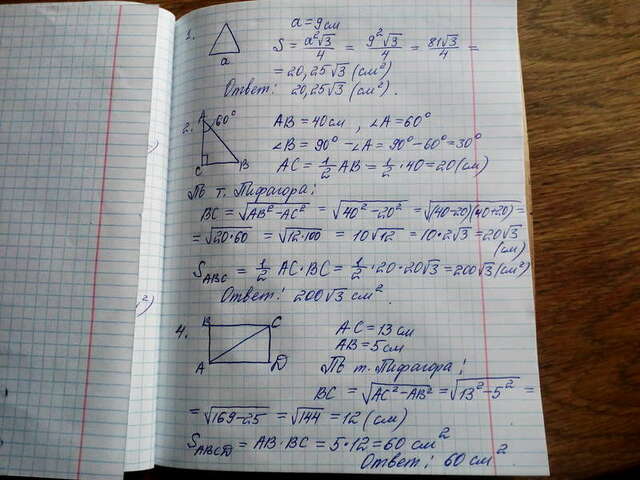 1.
a = 9 см
a
S = a²√3/4 = 9²√3/4 = 81√3/4 =
= 20,25√3 (см²)
Ответ: 20,25√3 (см²).
2.
A 60°
C B
AB = 40 см, ∠A = 60°
∠B = 90° - ∠A = 90° - 60° = 30°
AC = 1/2 AB = 1/2 · 40 = 20 (см)
По т. Пифагора:
BC = √AB² - AC² = √40² - 20² = √(40-20)(40+20) =
= √20·60 = √12·100 = 10√12 = 10·2√3 = 20√3
(см)
S ABC = 1/2 AC·BC = 1/2 · 20 · 20√3 = 200√3 (см²)
Ответ: 200√3 см².
4.
B C
A D
AC = 13 см
AB = 5 см
По т. Пифагора:
BC = √AC² - AB² = √13² - 5² =
= √169 - 25 = √144 = 12 (см)
S ABCD = AB · BC = 5 · 12 = 60 см²
Ответ: 60 см².